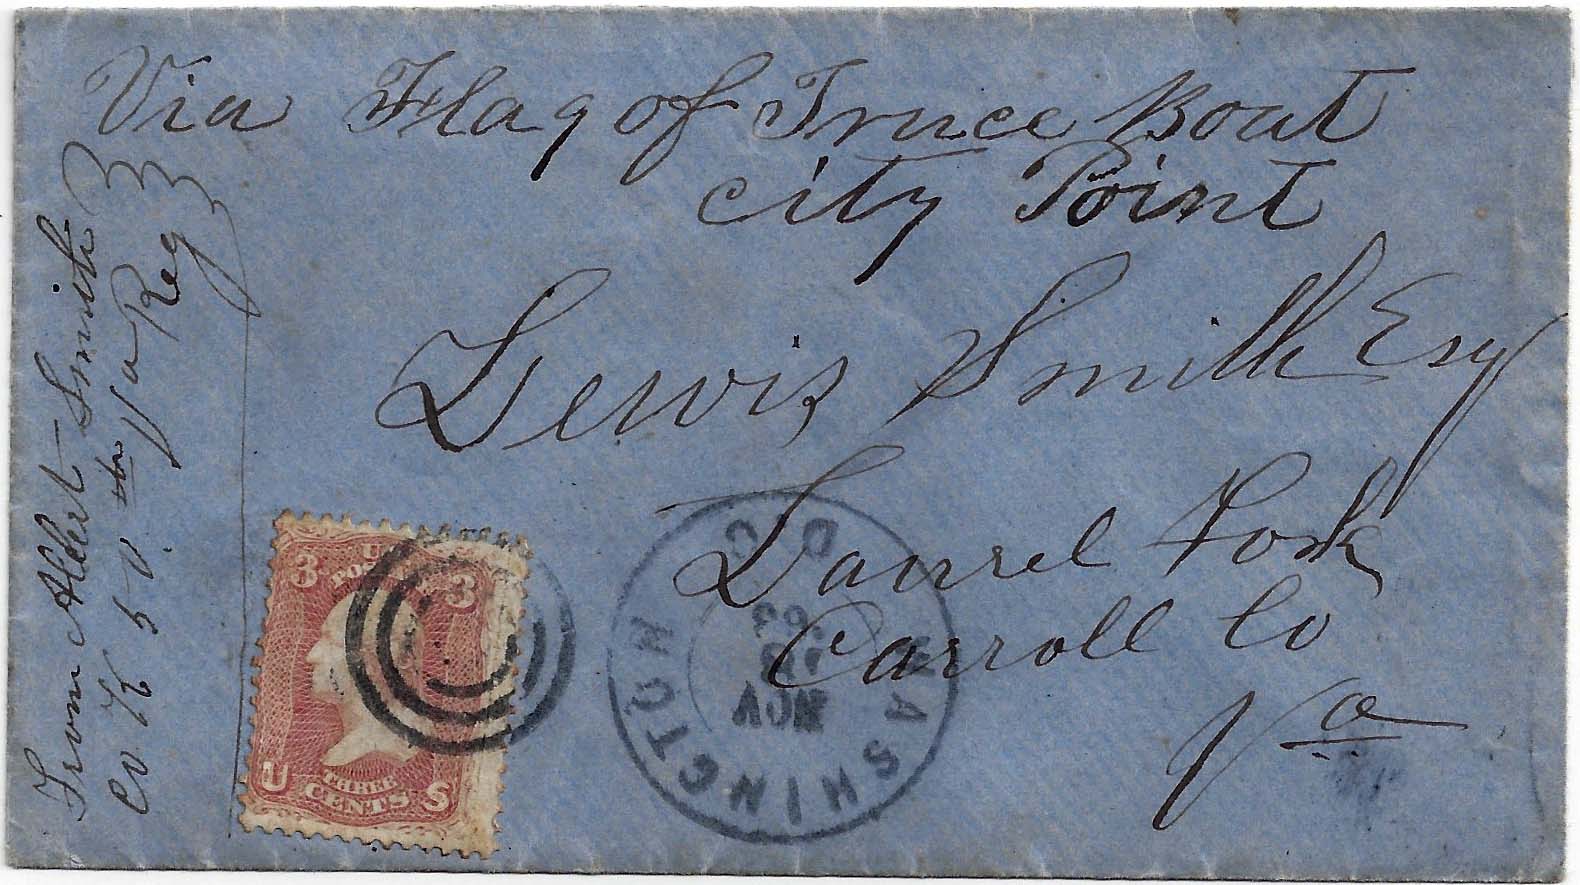 Via Flag of Truce Boat
City Point
Lewis Smith Esq
Laurel Fork
Carroll Co
Va
From Albert Smith
Co 50th Va Reg
3 U 3
THREE
U CENTS S
WASHINGTON D C
NOV
63